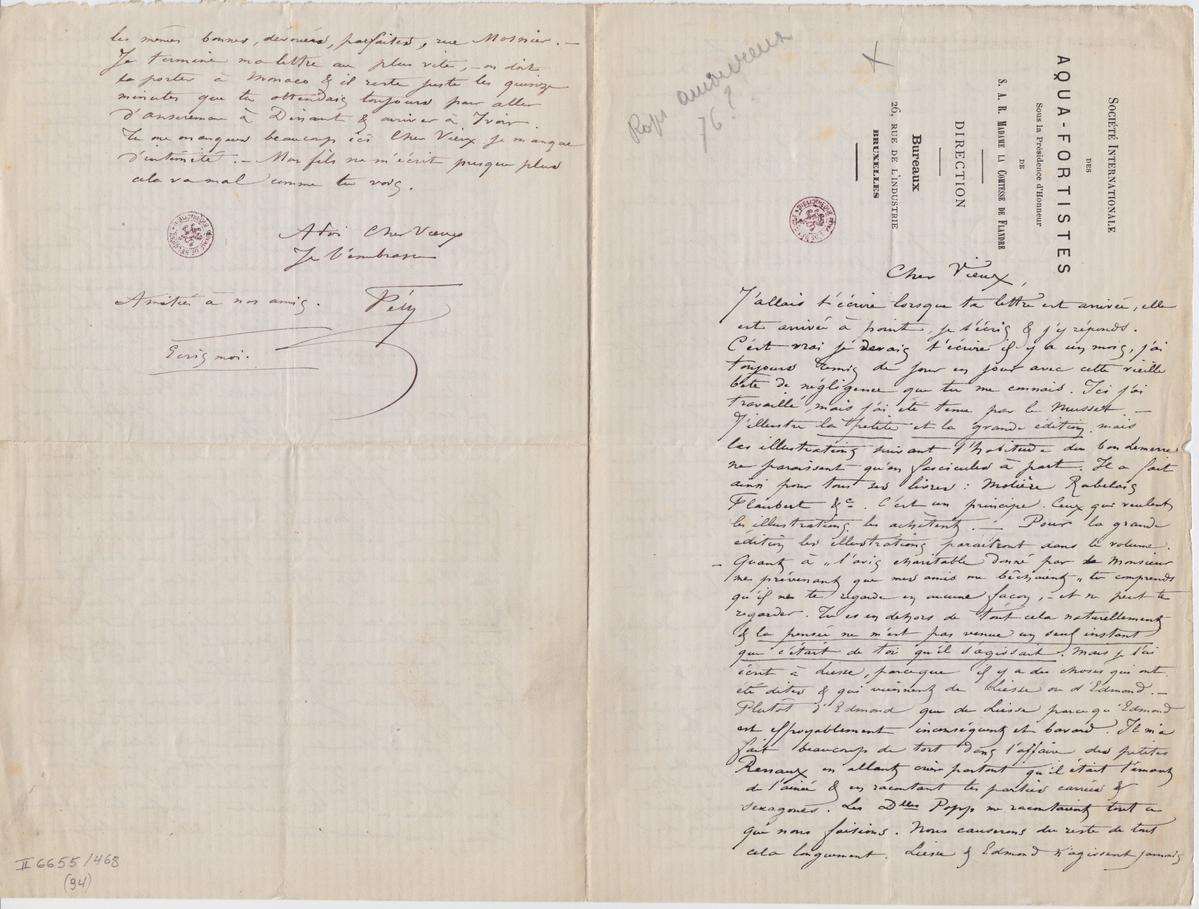 SOCIÉTÉ INTERNATIONALE
DES
AQUA-FORTISTES
Sous la Présidence d'Honneur
DE
S. A. R. MADAME LA COMTESSE DE FLANDRE
DIRECTION
Bureaux
26, RUE DE L'INDUSTRIE
BRUXELLES
Rops amoureux
76?
X
Cher Vieux,
J'allais t'écrire lorsque ta lettre est arrivée, elle
est arrivée à point, je t'écris & j'y réponds.
C'est vrai je devais t'écrire il y a un mois, j'ai
toujours remis de jour en jour avec cette vieille
bête de négligence que tu me connais. Ici j'ai
travaillé, mais j'ai été tenu par le Musset. –
J'illustre la petite et la grande édition, mais
les illustrations suivant l'habitude du bon Lemerre
ne paraissent qu'en fascicules à part. Il a fait
ainsi pour tous ses livres : Molière Rabelais
Flaubert &c. C'est un principe. Ceux qui veulent
les illustrations les achètent. – Pour la grande
édition les illustrations paraîtront dans le volume.
– Quant à „l'avis charitable donné par le Monsieur
me prévenant que mes amis me bêchaient„ tu comprends
qu'il ne te regarde en aucune façon, – et ne peut te
regarder. Tu es en dehors de tout cela naturellement
& la pensée ne m'est pas venue un seul instant
que c'était de toi qu'il s'agissait. Mais je l'ai
écrit à Liesse, parceque il y a des choses qui ont
été dites & qui viennent de Liesse ou d'Edmond. –
Plutôt d'Edmond que de Liesse parce qu'Edmond
est effroyablement inconséquent et bavard. Il m'a
fait beaucoup de tort dans l'affaire des petites
en allant crier partout qu'il était l'amant
de l'ainée & en racontant les parties carrées &
sexagones. Les Dlles Popp me racontaient tout ce
que nous faisions. Nous causerons du reste de tout
cela longuement. Liesse & Edmond n'agissent jamais
les mêmes bonnes, dévouées, parfaites, rue Mosnier. –
Je termine ma lettre au plus vite, – on doit
la porter à Monaco & il reste juste les quinze
minutes que tu attendais toujours pour aller
d'Anseremme à Dinant & arriver à Yvoir.
Tu me manques beaucoup ici Cher Vieux je manque
d'intimité. – Mon fils ne m'écrit presque plus
cela va mal comme tu vois.
Cher Vieux
Je t'embrasse
Amitiés à nos amis. Fély
Ecris moi.
II 6655/468
(94)